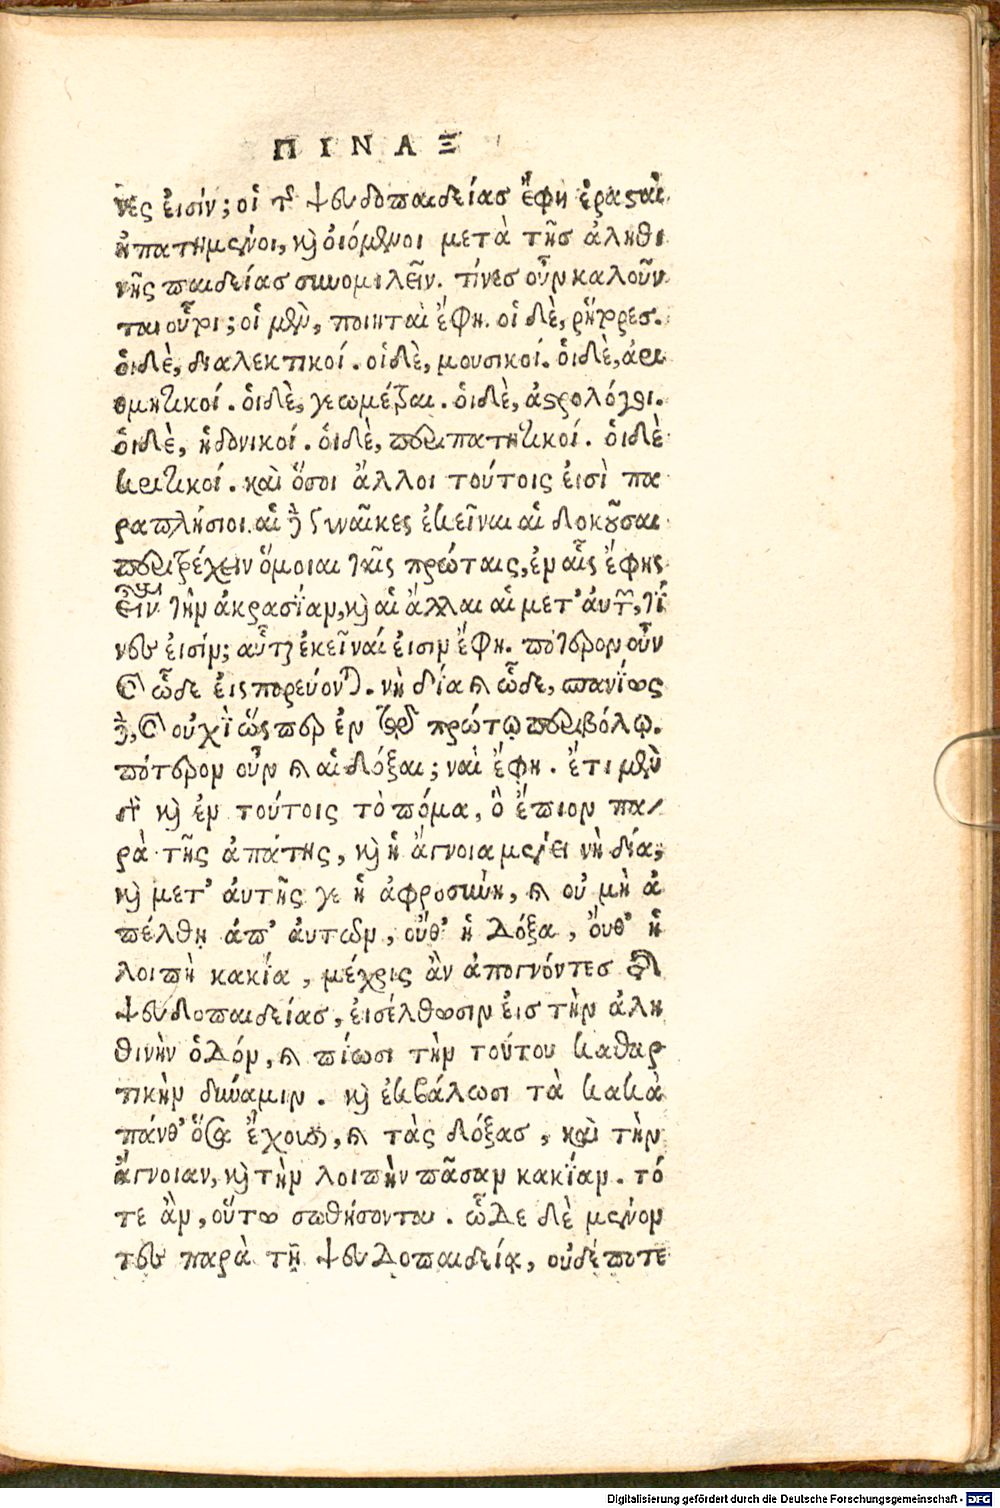 ΠΙΝΑΞ
νες ἐισίν; οἱ τῆς ψευδοπαιδείας ἔφη ἐραςαὶ
ἠπατημένοι, καὶ ὀιόμενοι μετὰ τῆς ἀληθι
νῆς παιδείας συνομιλεῖν. τίνες οὖν καλοῦν
ται οὗτοι; οἱ μὲν, ποιηταὶ ἔφη. οἱ δὲ, ῥήτορες.
ὁιδὲ, διαλεκτικοί. οἱδὲ, μουσικοί. ὁιδὲ, ἀρι
θμητικοί. ὁιδὲ, γεωμέτραι. ὁιδὲ, ἀςρολόγοι.
ὁιδὲ, ἡδονικοί. ὁιδὲ, περιπατητικοί. ὁιδὲ
κριτικοί. καὶ ὅσοι ἄλλοι τούτοις ἐισὶ πα
ραπλήσιοι. αἱ δὲ γυναῖκες ἐκεῖναι αἱ δοκοῦσαι
περιτρέχειν ὅμοιαι ταῖς πρώταις, ἐν αἷς ἔφης
εἶναι τὴν ἀκρασίαν, καὶ αἱ ἄλλαι αἱ μετ' ἀυτῶν, τί
νες ἐισίν; αὗται ἐκεῖναί ἐισιν ἔφη. πότερον οὖν
καὶ ὧδε ἐισπορεύονται. νὴ δία καὶ ὧδε, σπανίως
δὲ, καὶ οὐχὶ ὥςπερ ἐν τῷ πρώτῳ περιβόλῳ.
πότερον οὖν καὶ αἱ δόξαι; ναὶ ἔφη. ἔτι μὲν
γὰρ καὶ ἐν τούτοις τὸ πόμα, ὃ ἔπιον πα
ρὰ τῆς ἀπάτης, καὶ ἡ ἄγνοια μένει νὴ δία,
καὶ μετ' ἀυτῆς γε ἡ ἀφροσύνη, καὶ οὐ μὴ ἀ
πέλθῃ ἀπ' ἀυτων, οὔθ' ἡ Δόξα, ὄυθ' ἡ
λοιπὴ κακία, μέχρις ἂν ἀπογνόντες τῆς
ψευδοπαιδείας, ἐισέλθωσιν ἐις τὴν ἀλη
θινὴν ὁδόν, καὶ πίωσι τὴν τούτου καθαρ
τικὴν δύναμιν. καὶ ἐκβάλωσι τὰ κακὰ
πάνθ' ὅσα ἔχουσι, καὶ τὰς δόξας, καὶ τὴν
ἄγνοιαν, καὶ τὴν λοιπὴν πᾶσαν κακίαν. τό
τε ἂν, οὕτω σωθήσονται. ὧδε δὲ μένον
τες παρὰ τῇ ψευδοπαιδείᾳ, οὐδέποτε
Digitalisierung gefördert durch die Deutsche Forschungsgemeinschaft - DFG